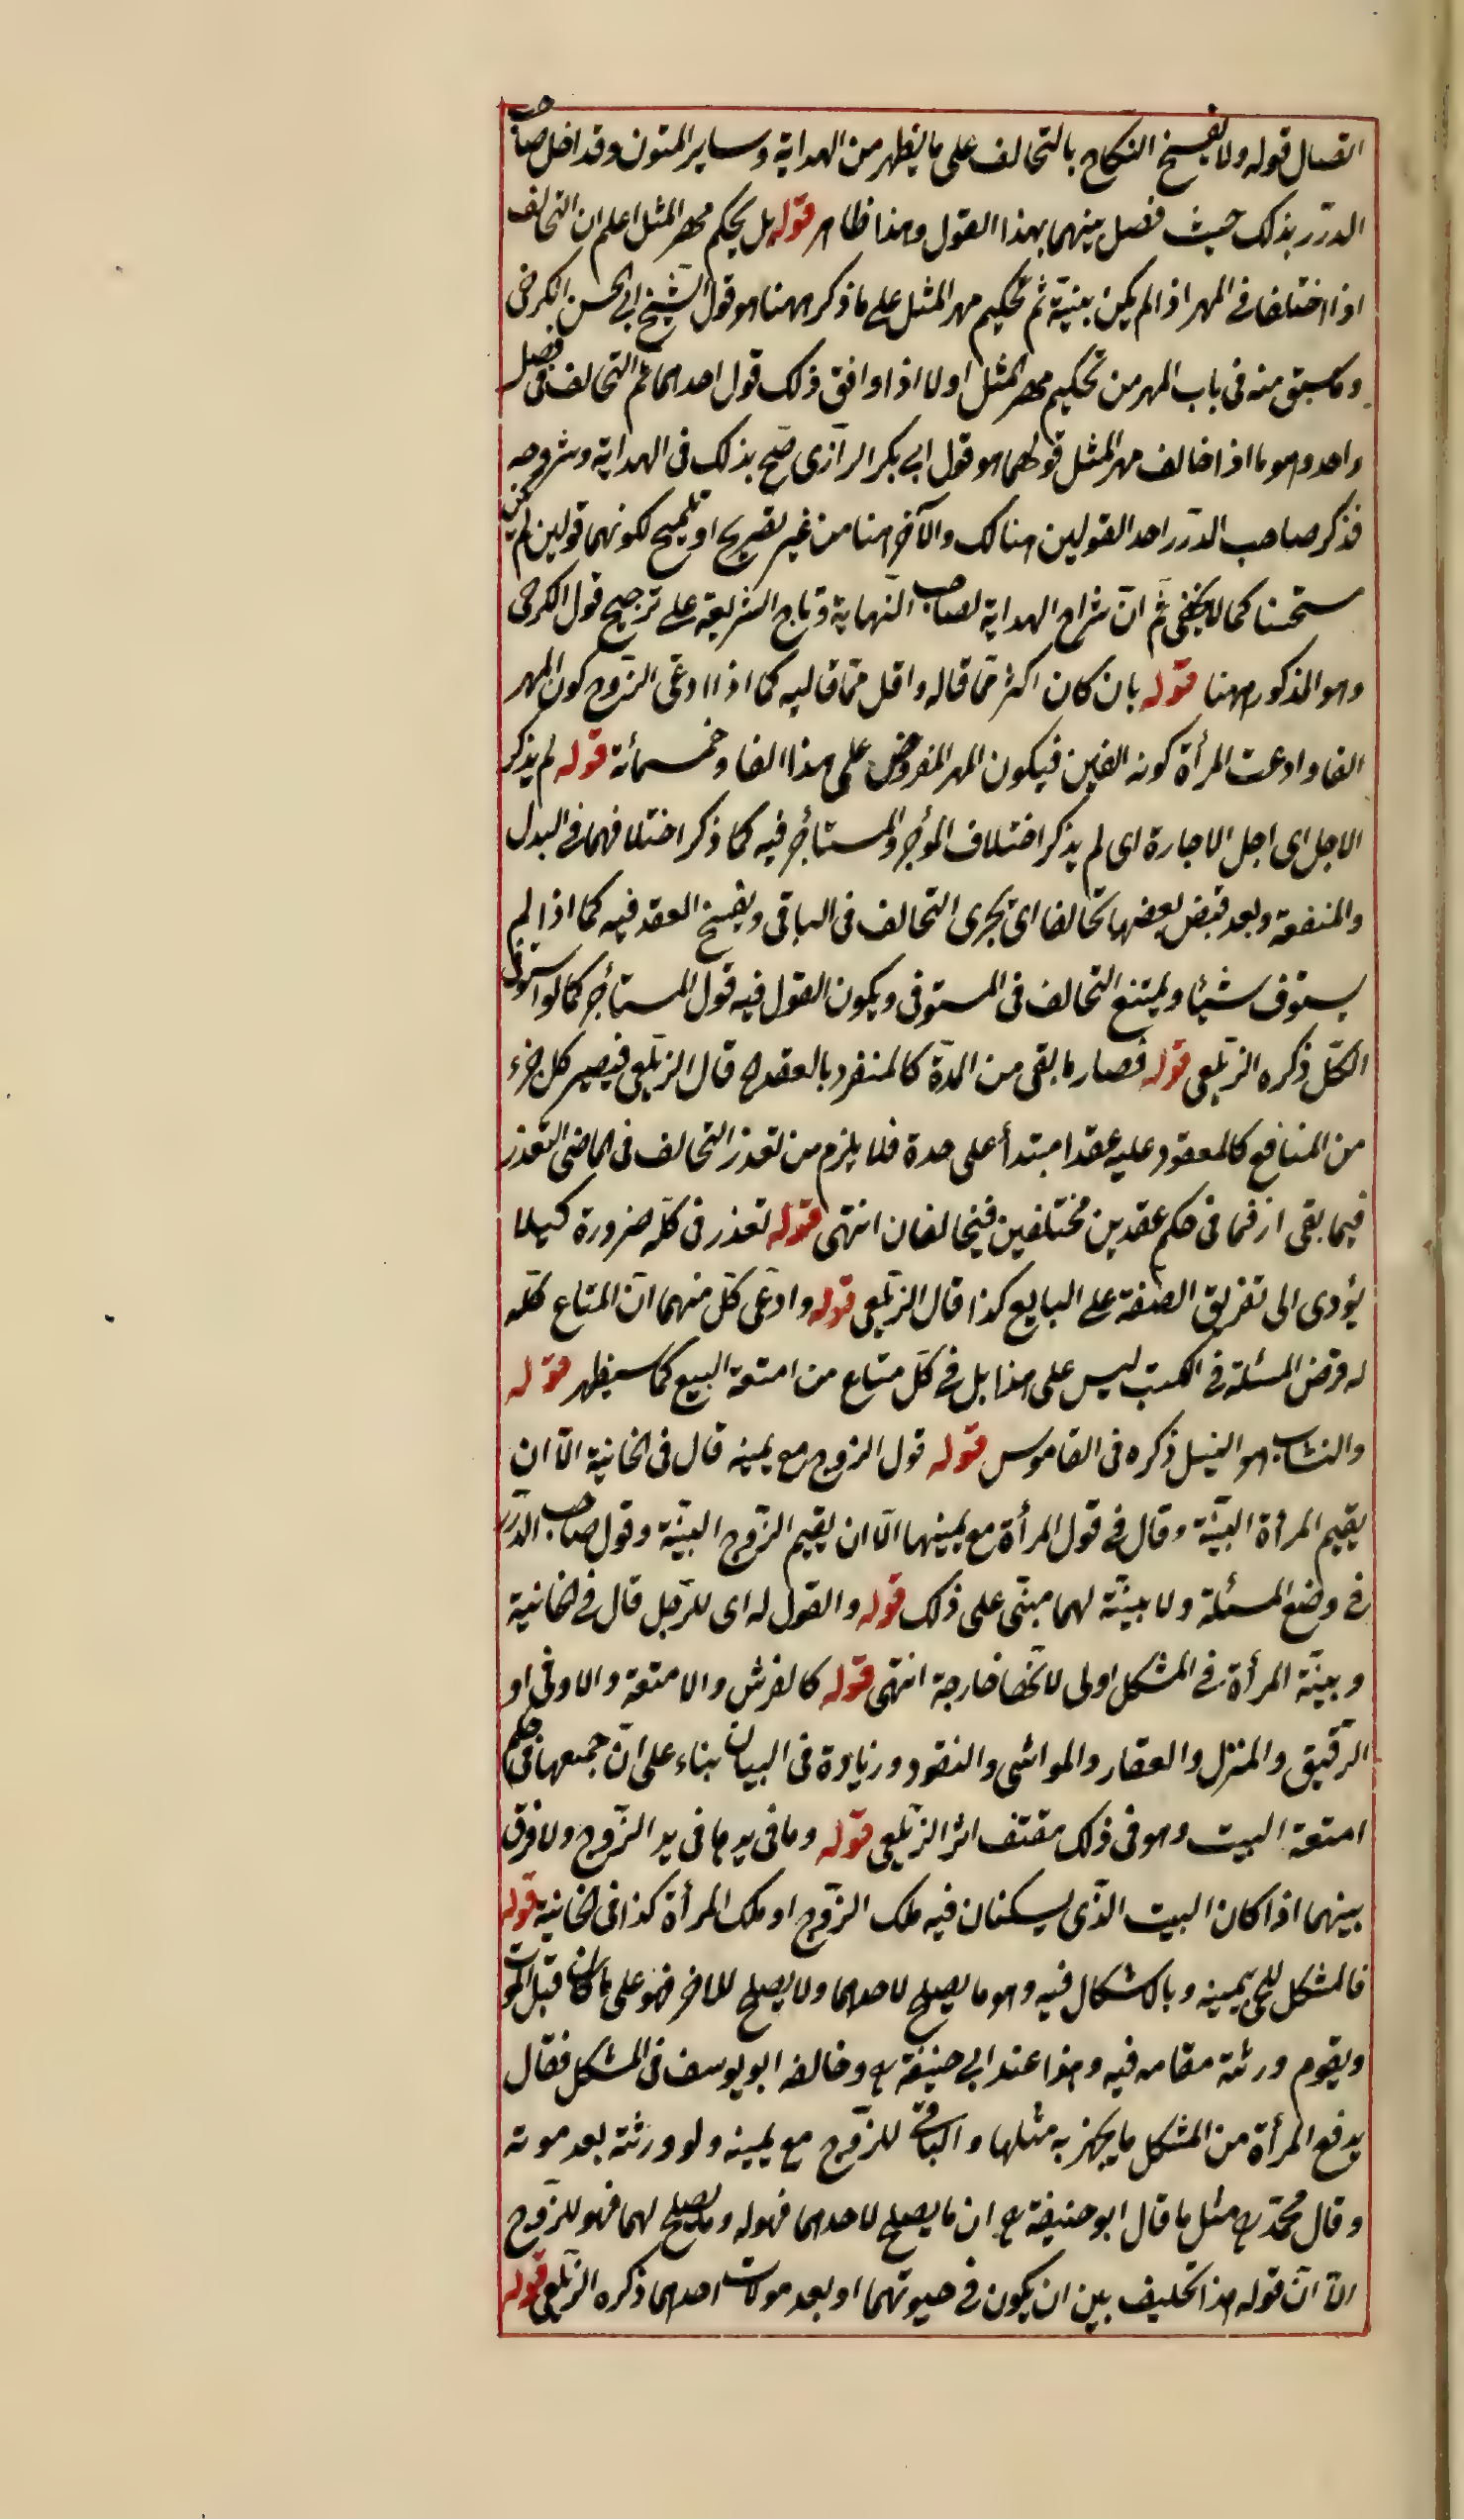 اتصال قوله ولا يفسخ النكاح بالتحالف على ما يظهر من الهداية وساير المتون وقد اخل صاحب
الدرر بذلك حيث فصل بينهما بهذا القول وهذا ظاهر قوله بل يحكم مهر المثل اعلم ان التحالف
اذا اختلفا فى المهر اذا لم يكن بينة ثم تحكيم مهر المثل على ما ذكر ههنا هو قول الشيخ ابى الحسن الكرخى
وما سبق منه فى باب المهر من تحكيم مهر المثل اولا اذا وافق ذلك قول احدهما ثم التحالف فى فصل
واحد وهو ما اذا خالف مهر المثل قولهما هو قول ابى بكر الرازى صرح بذلك فى الهداية وشروحه
فذكر صاحب الدرر احد القولين هنالك والآخر هنا من غير تصريح او تلميح لكونهما قولين لم يكن
مستحسنا كما لا يخفى ثم ان شراح الهداية لصاحب النهاية وتاج الشريعة على ترجيح قول الكرخى
وهو المذكور ههنا قوله بان كان اكثر مما قاله واقل مما قالته كما اذا ادعى الزوج كون المهر
الفا وادعت المرأة كونه الفين فيكون المهر المفروض على هذا الفا وخمسمائة قوله لم يذكر
الاجل اى اجل الاجارة اى لم يذكر اختلاف المؤجر والمستأجر فيه كما ذكر اختلافهما فى البدل
والمنفعة وبعد قبض بعضها تحالفا اى يجرى التحالف فى الباقى ويفسخ العقد فيه كما اذا لم
يستوف شيئا ويمتنع التحالف فى المستوفى ويكون القول فيه قول المستأجر كما لو استوفى
الكل ذكره الزيلعى قوله فصار ما بقى من المدة كالمنفرد بالعقد اه قال الزيلعى فيصير كل جزء
من المنافع كالمعقود عليه عقدا مبتدأ على حدة فلا يلزم من تعذر التحالف فى الماضى التعذر
فيما بقى اذ هما فى حكم عقدين مختلفين فيتحالفان انتهى قوله تعذر فى كله ضرورة كيلا
يؤدى الى تفريق الصفقة على البايع كذا قال الزيلعى قوله وادعى كل منهما ان المتاع كله
له وفرض المسئلة فى الكتب ليس على هذا بل فى كل متاع من امتعة البيع كما سيظهر قوله
والنشاب هو النبل ذكره فى القاموس قوله قول الزوج مع يمينه قال فى الخانية الا ان
يقيم المرأة البينة وقال فى قول المرأة مع يمينها الا ان يقيم الزوج البينة وقول صاحب الدرر
فى وضع المسئلة ولا بينة لهما مبنى على ذلك قوله والقول له اى للرجل قال فى الخانية
وبينة المرأة فى المشكل اولى لانها خارجة انتهى قوله كالفرش والامتعة والاوانى او
الرقيق والمنزل والعقار والمواشى والنقود وزيادة فى البيان بناء على ان جميعها فى حكم
امتعة البيت وهو فى ذلك مقتف اثر الزيلعى قوله وما فى يدها فى يد الزوج ولا فرق
بينهما اذا كان البيت الذى يسكنان فيه ملك الزوج او ملك المرأة كذا فى الخانية قوله
فالمشكل للحى بيمينه وما لا اشكال فيه وهو ما يصلح لاحدهما ولا يصلح للآخر فهو على ما كان قبل الموت
ويقوم ورثته مقامه فيه وهذا عند ابى حنيفة رح وخالفه ابو يوسف فى المشكل فقال
يدفع المرأة من المشكل ما يجهز به مثلها والباقى للزوج مع يمينه ولو ورثته بعد موته
وقال محمد رح مثل ما قال ابو حنيفة رح ان ما يصلح لاحدهما فهو له وما يصلح لهما فهو للزوج
الا ان قوله هذا تحليف بين ان يكون فى حيوتهما او بعد موت احدهما ذكره الزيلعى قوله